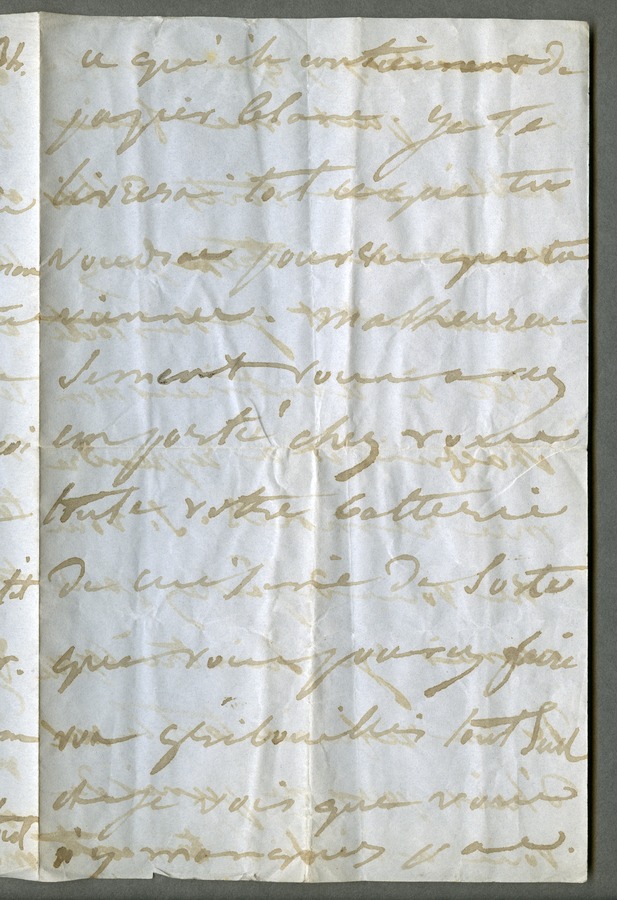 ce qu'ils contiennent de
papier blanc. Je te
livrerai tout ce que tu
voudras pourvu que tu
viennes. Malheureu-
sement vous avez
emporté chez vous
toute votre batterie
de cuisine de sorte
que vous pouvez faire
vos gribouillis tout seul
et je vois que vous
n'y manquez pas.